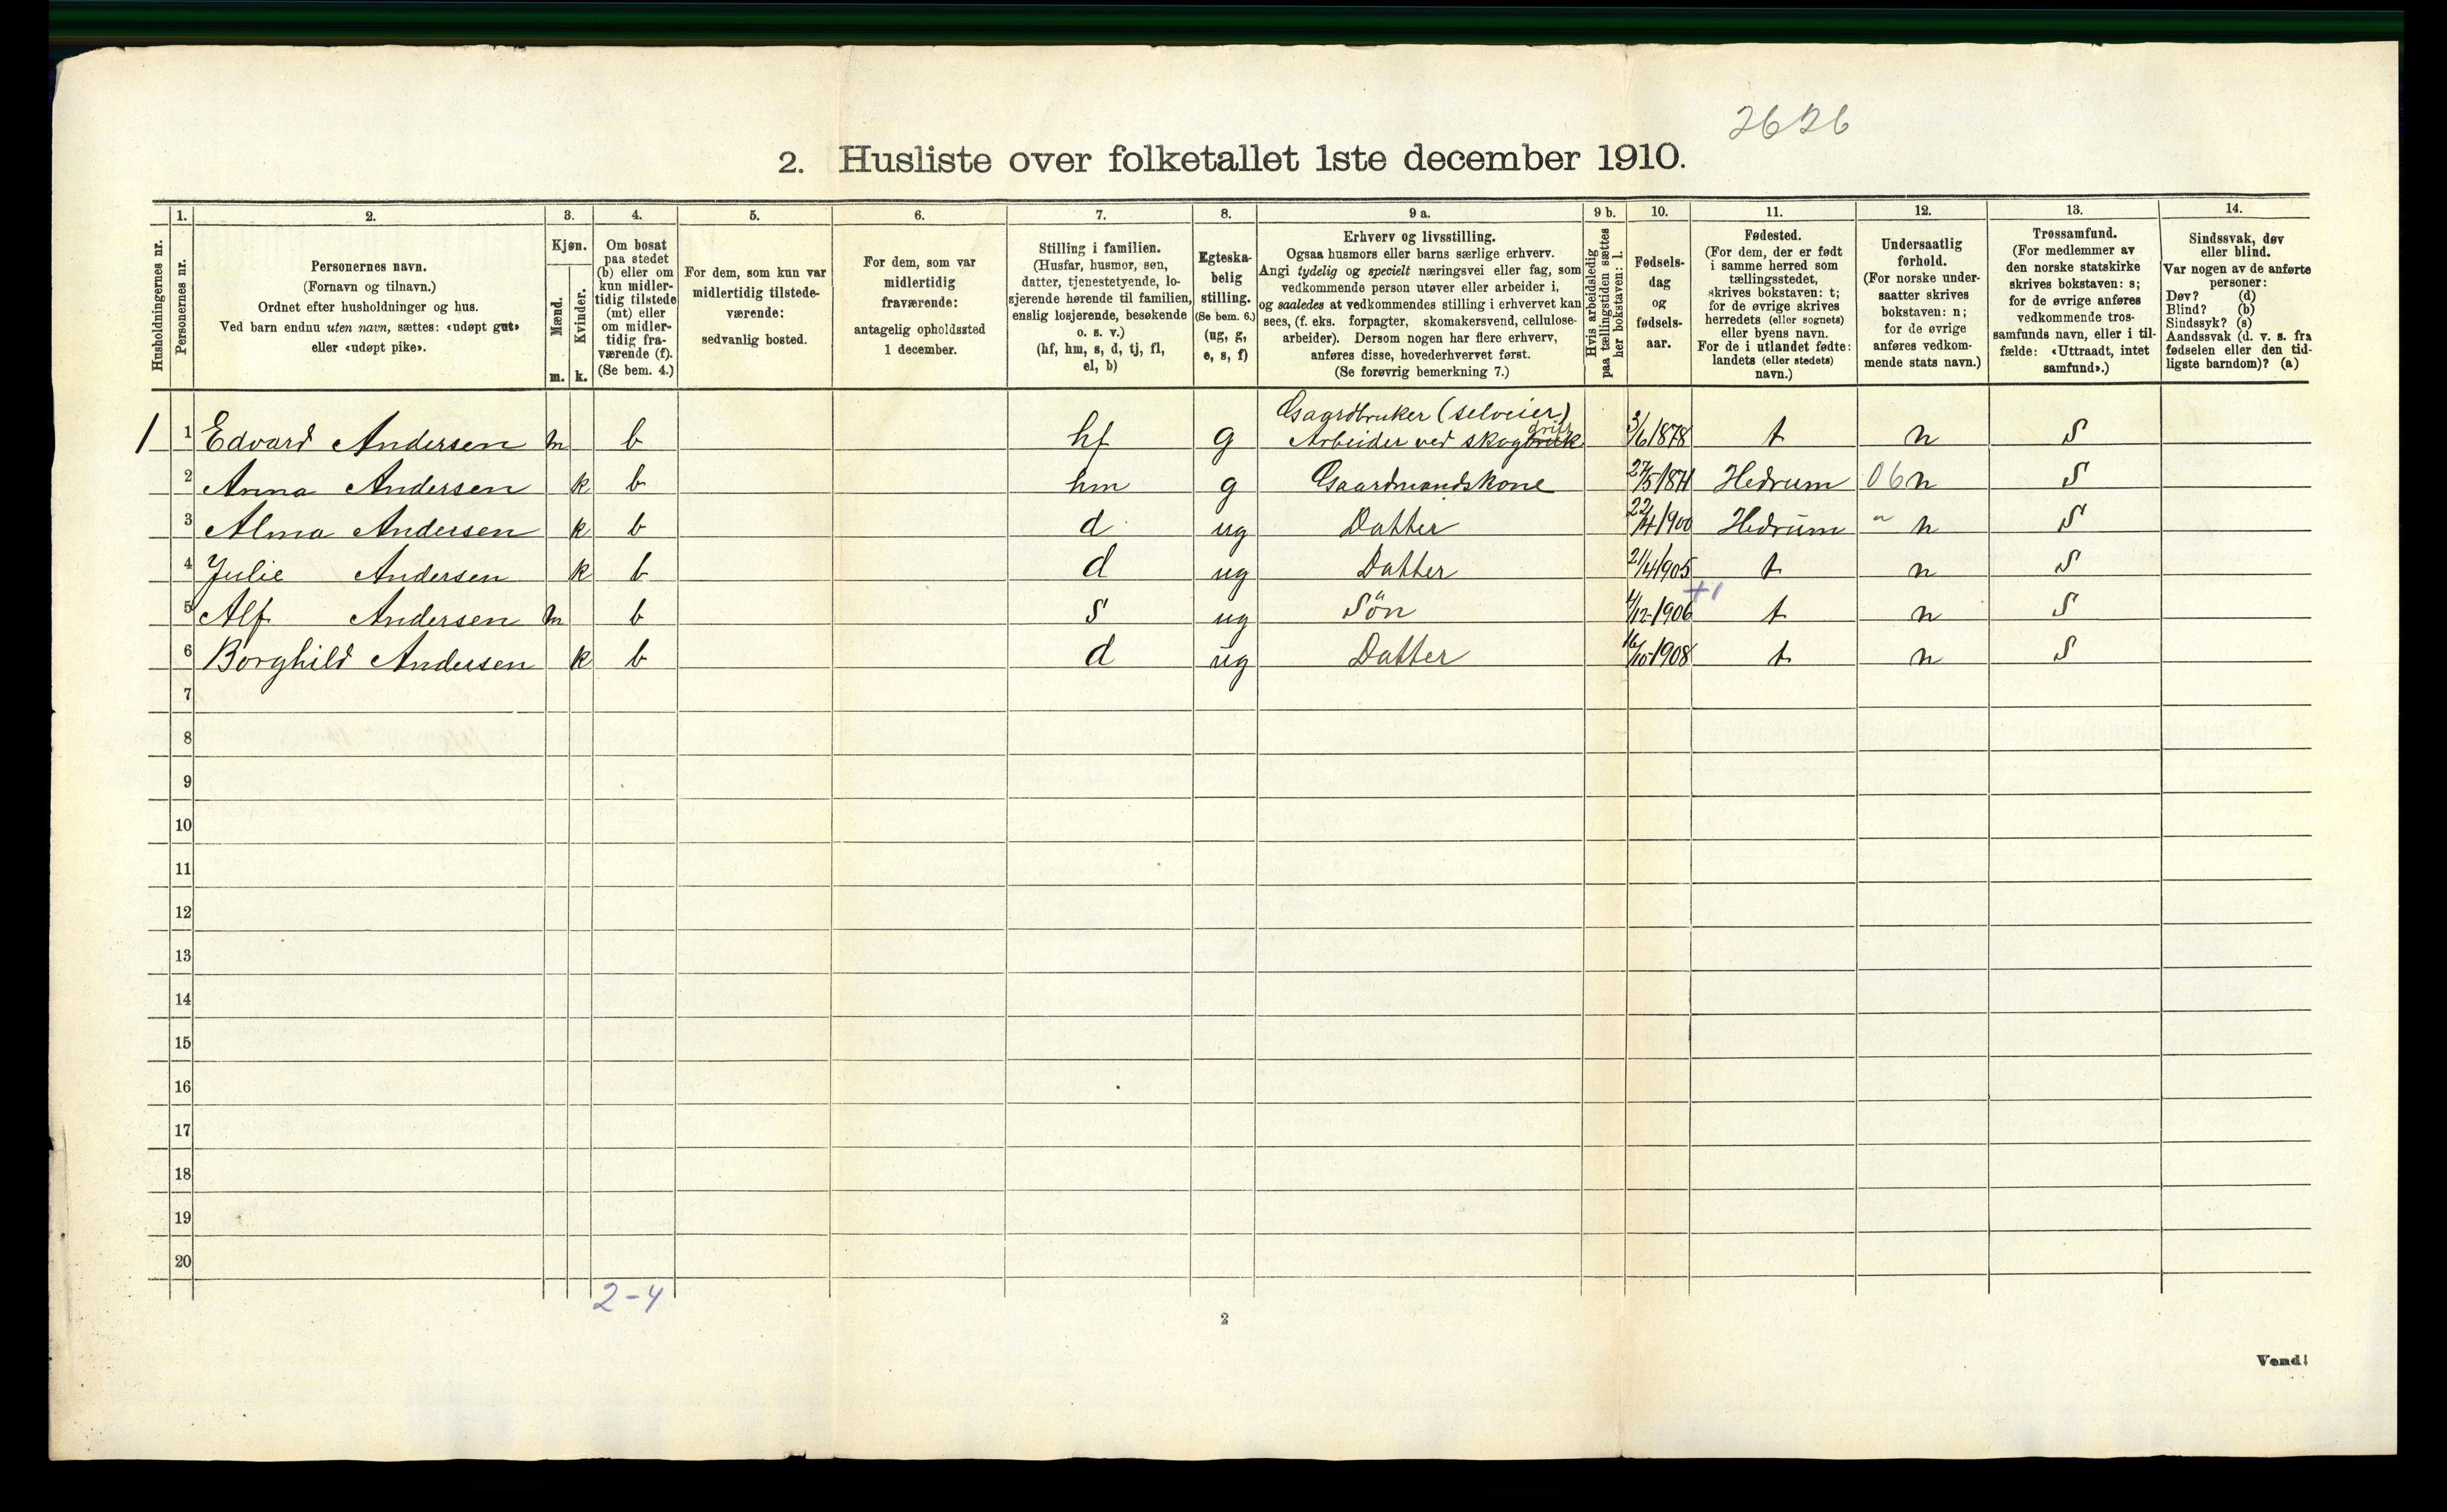 2626
2. Husliste over folketallet 1ste december 1910.
Husholdningernes nr.
1.
Personernes nr.
2.
Personernes navn.
(Fornavn og tilnavn.)
Ordnet efter husholdninger og hus.
Ved barn endnu uten navn, sættes: «udøpt gut»
eller «udøpt pike».
3.
Kjøn.
Mænd.
Kvinder.
m. k.
4.
Om bosat
paa stedet
(b) eller om
kun midler-
tidig tilstede
(mt) eller
om midler-
tidig fra-
værende (f).
(Se bem. 4.)
5.
For dem, som kun var
midlertidig tilstede-
værende:
sedvanlig bosted.
6.
For dem, som var
midlertidig
fraværende:
antagelig opholdssted
1 december.
7.
Stilling i familien.
(Husfar, husmor, søn,
datter, tjenestetyende, lo-
sjerende hørende til familien,
enslig losjerende, besøkende
o. s. v.)
(hf, hm, s, d, tj, fl,
el, b)
8.
Egteska-
belig
stilling.
(Se bem. 6.)
(ug, g,
e, s, f)
9 a.
Erhverv og livsstilling.
Ogsaa husmors eller barns særlige erhverv.
Angi tydelig og specielt næringsvei eller fag, som
vedkommende person utøver eller arbeider i,
og saaledes at vedkommendes stilling i erhvervet kan
sees, (f. eks. forpagter, skomakersvend, cellulose-
arbeider). Dersom nogen har flere erhverv,
anføres disse, hovederhvervet først.
(Se forøvrig bemerkning 7.)
9 b.
Hvis arbeidsledig
paa tællingstiden sættes
her bokstaven: l.
10.
Fødsels-
dag
og
fødsels-
aar.
11.
Fødested.
(For dem, der er født
i samme herred som
tællingsstedet,
skrives bokstaven: t;
for de øvrige skrives
herredets (eller sognets)
eller byens navn.
For de i utlandet fødte:
landets (eller stedets)
navn.)
12.
Undersaatlig
forhold.
(For norske under-
saatter skrives
bokstaven: n;
for de øvrige
anføres vedkom-
mende stats navn.)
13.
Trossamfund.
(For medlemmer av
den norske statskirke
skrives bokstaven: s;
for de øvrige anføres
vedkommende tros-
samfunds navn, eller i til-
fælde: «Uttraadt, intet
samfund».)
14.
Sindssvak, døv
eller blind.
Var nogen av de anførte
personer:
Døv? (d)
Blind? (b)
Sindssyk? (s)
Aandssvak (d. v. s. fra
fødselen eller den tid-
ligste barndom)? (a)
Gaardbruker (selveier)
1 1 Edvard Andersen m b hf g Arbeider ved skogbruk drift 3/6 1878 t n S
2 Anna Andersen k b hm g Gaardmandskone 27/5 1871 Hedrum 06 n S
3 Alma Andersen k b d ug Datter 22/4 1900 Hedrum " n S
4 Julie Andersen k b d ug Datter 21/4 1905 t n S
+1
5 Alf Andersen m b s ug Sön 4/12-1906 t n S
6 Borghild Andersen k b d ug Datter 16/10-1908 t n S
7
8
9
10
11
12
13
14
15
16
17
18
19
20
2-4
2
Vend!